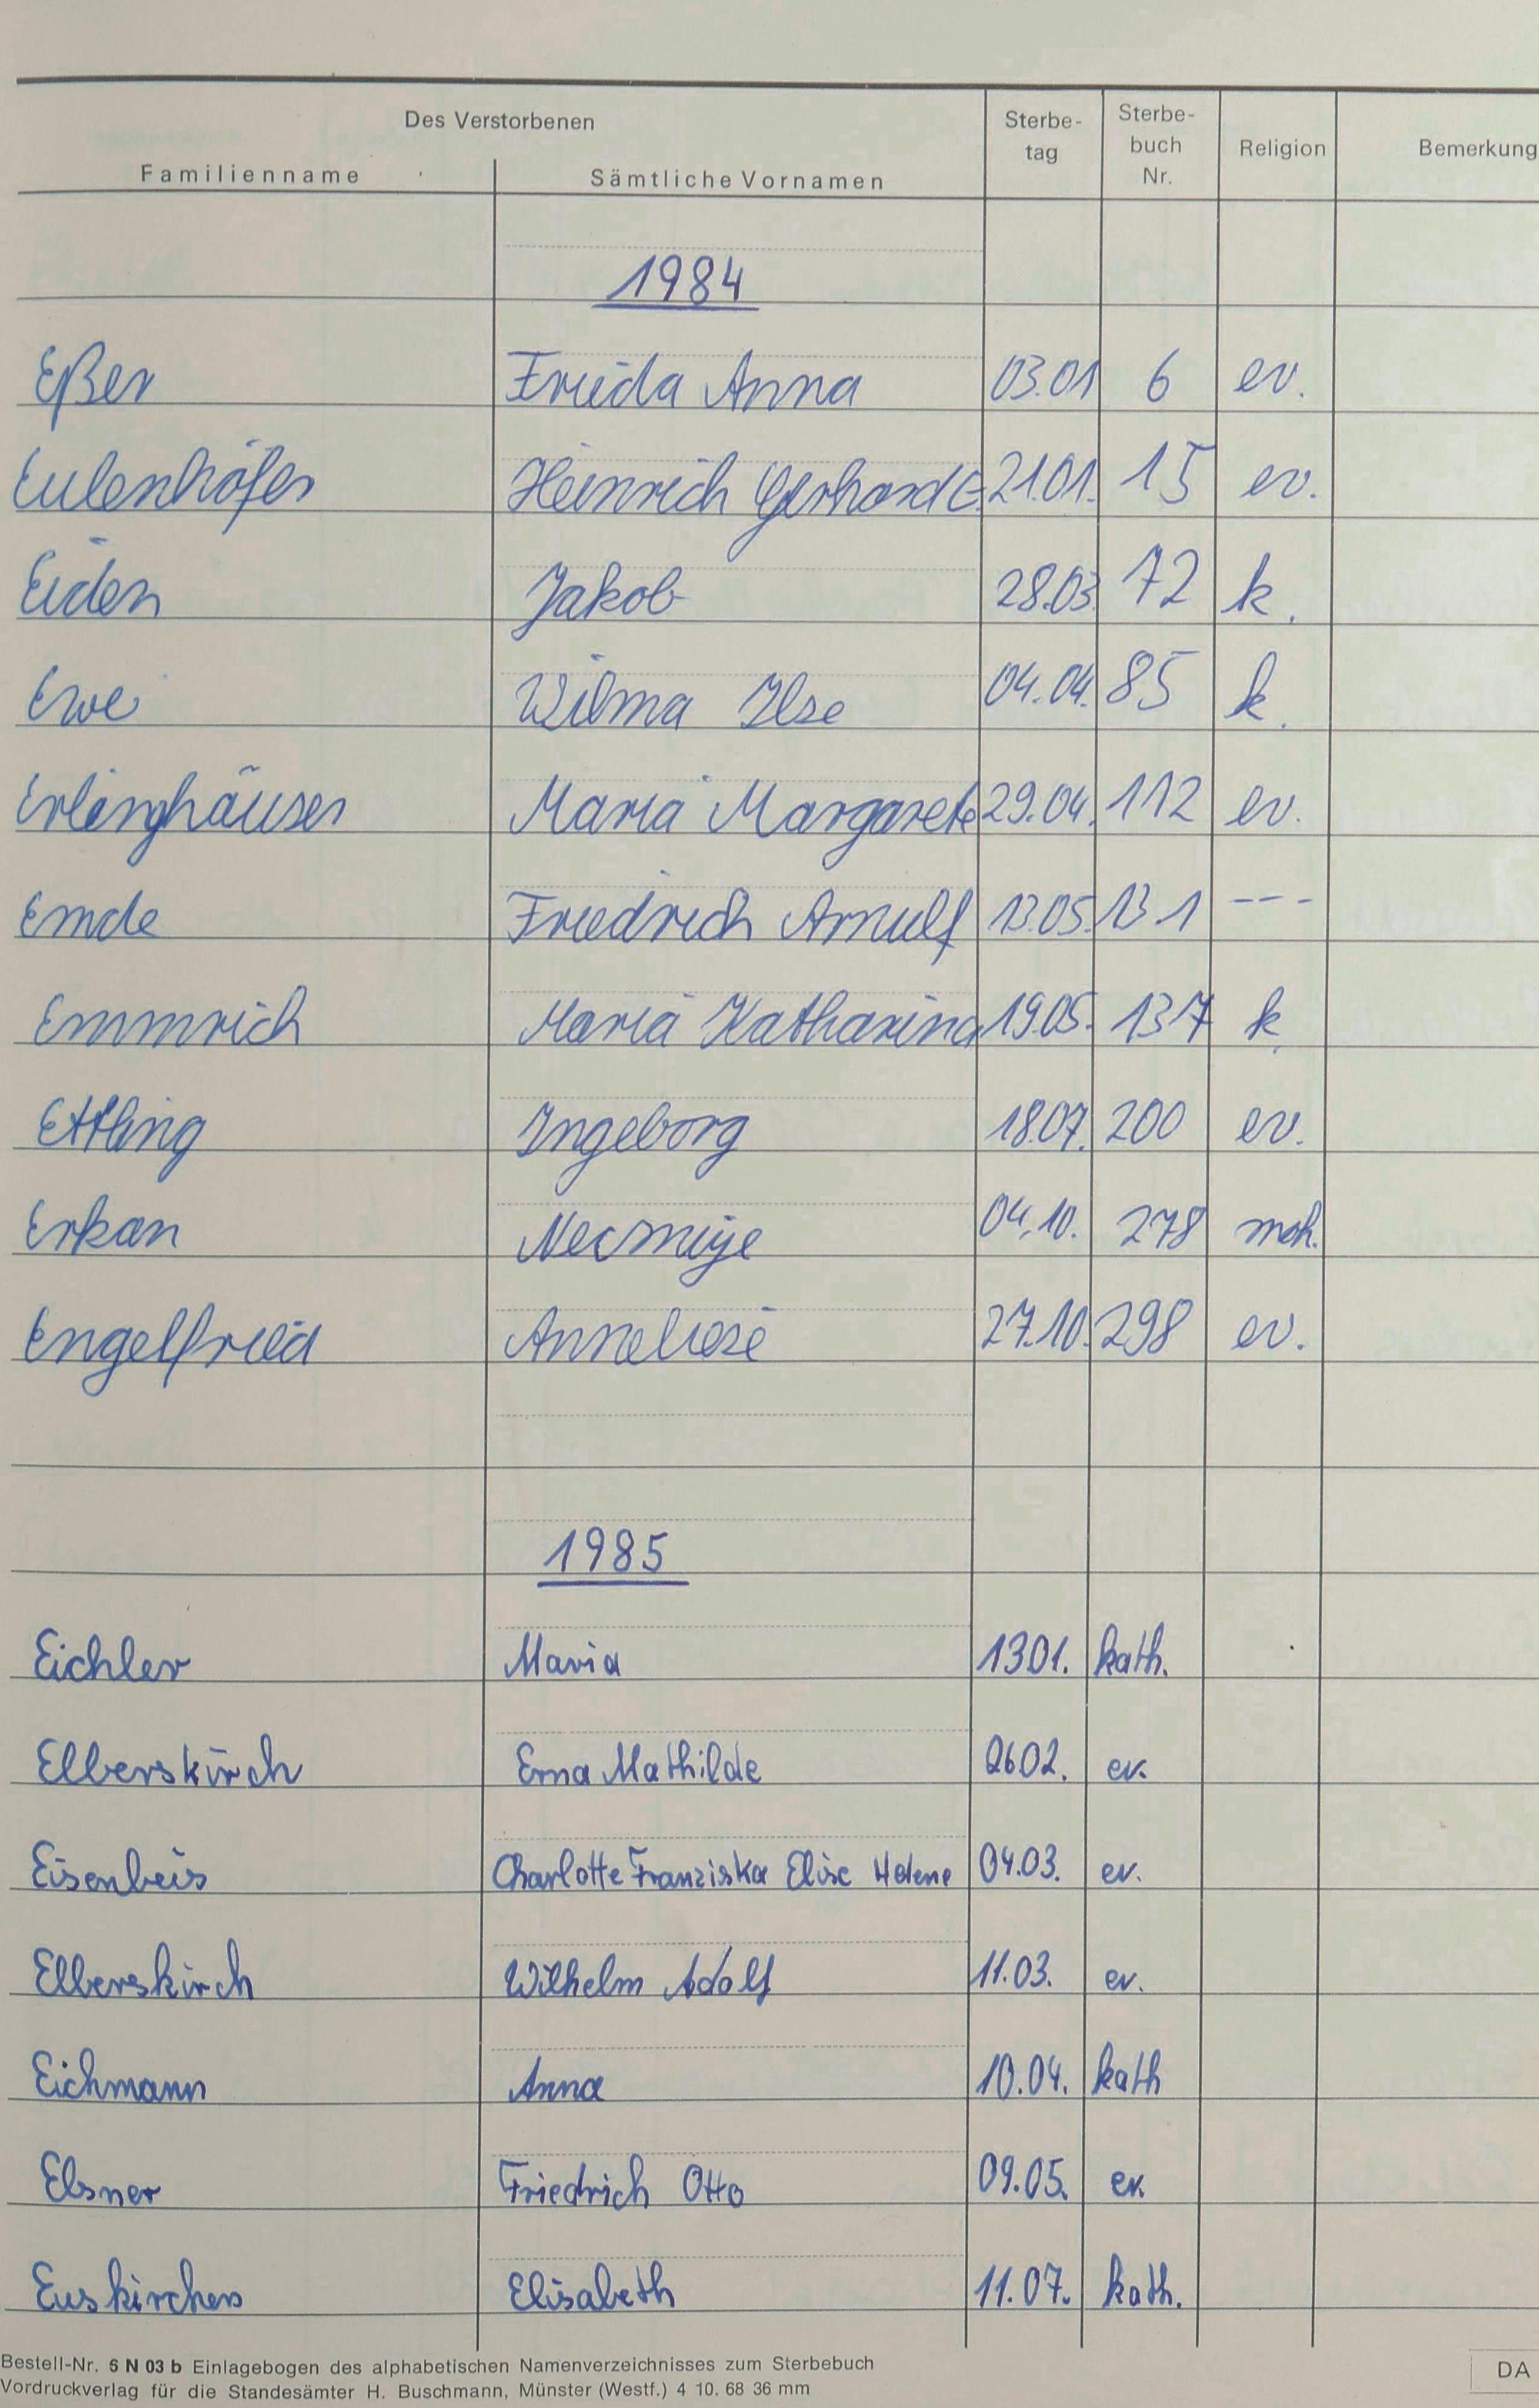 Des Verstorbenen Sterbe- Sterbe-
tag buch Religion Bemerkung
Familienname Sämtliche Vornamen Nr.
1984
Eßer Frieda Anna 03.01 6 ev.
Eulenhöfer Heinrich Gerhard E. 21.01. 15 ev.
Eiden Jakob 28.03. 72 k.
Ewe Wilma Ilse 04.04. 85 k.
Erlinghäuser Maria Margarete 29.04. 112 ev.
Emde Friedrich Arnulf 13.05. 131 ---
Emmrich Maria Katharina 19.05. 137 k.
Ettling Ingeborg 18.07. 200 ev.
Erkan Necmiye 04.10. 278 moh.
Engelfried Anneliese 27.10. 298 ev.
1985
Eichler Maria 13.01. kath.
Elberskirch Erna Mathilde 26.02. ev.
Eisenbeis Charlotte Franziska Elise Helene 04.03. ev.
Elberskirch Wilhelm Adolf 11.03. ev.
Eichmann Anna 10.04. kath
Elsner Friedrich Otto 09.05. ev.
Euskirchen Elisabeth 11.07. kath.
Bestell-Nr. 6 N 03 b Einlagebogen des alphabetischen Namenverzeichnisses zum Sterbebuch
Vordruckverlag für die Standesämter H. Buschmann, Münster (Westf.) 4 10. 68 36 mm
DA